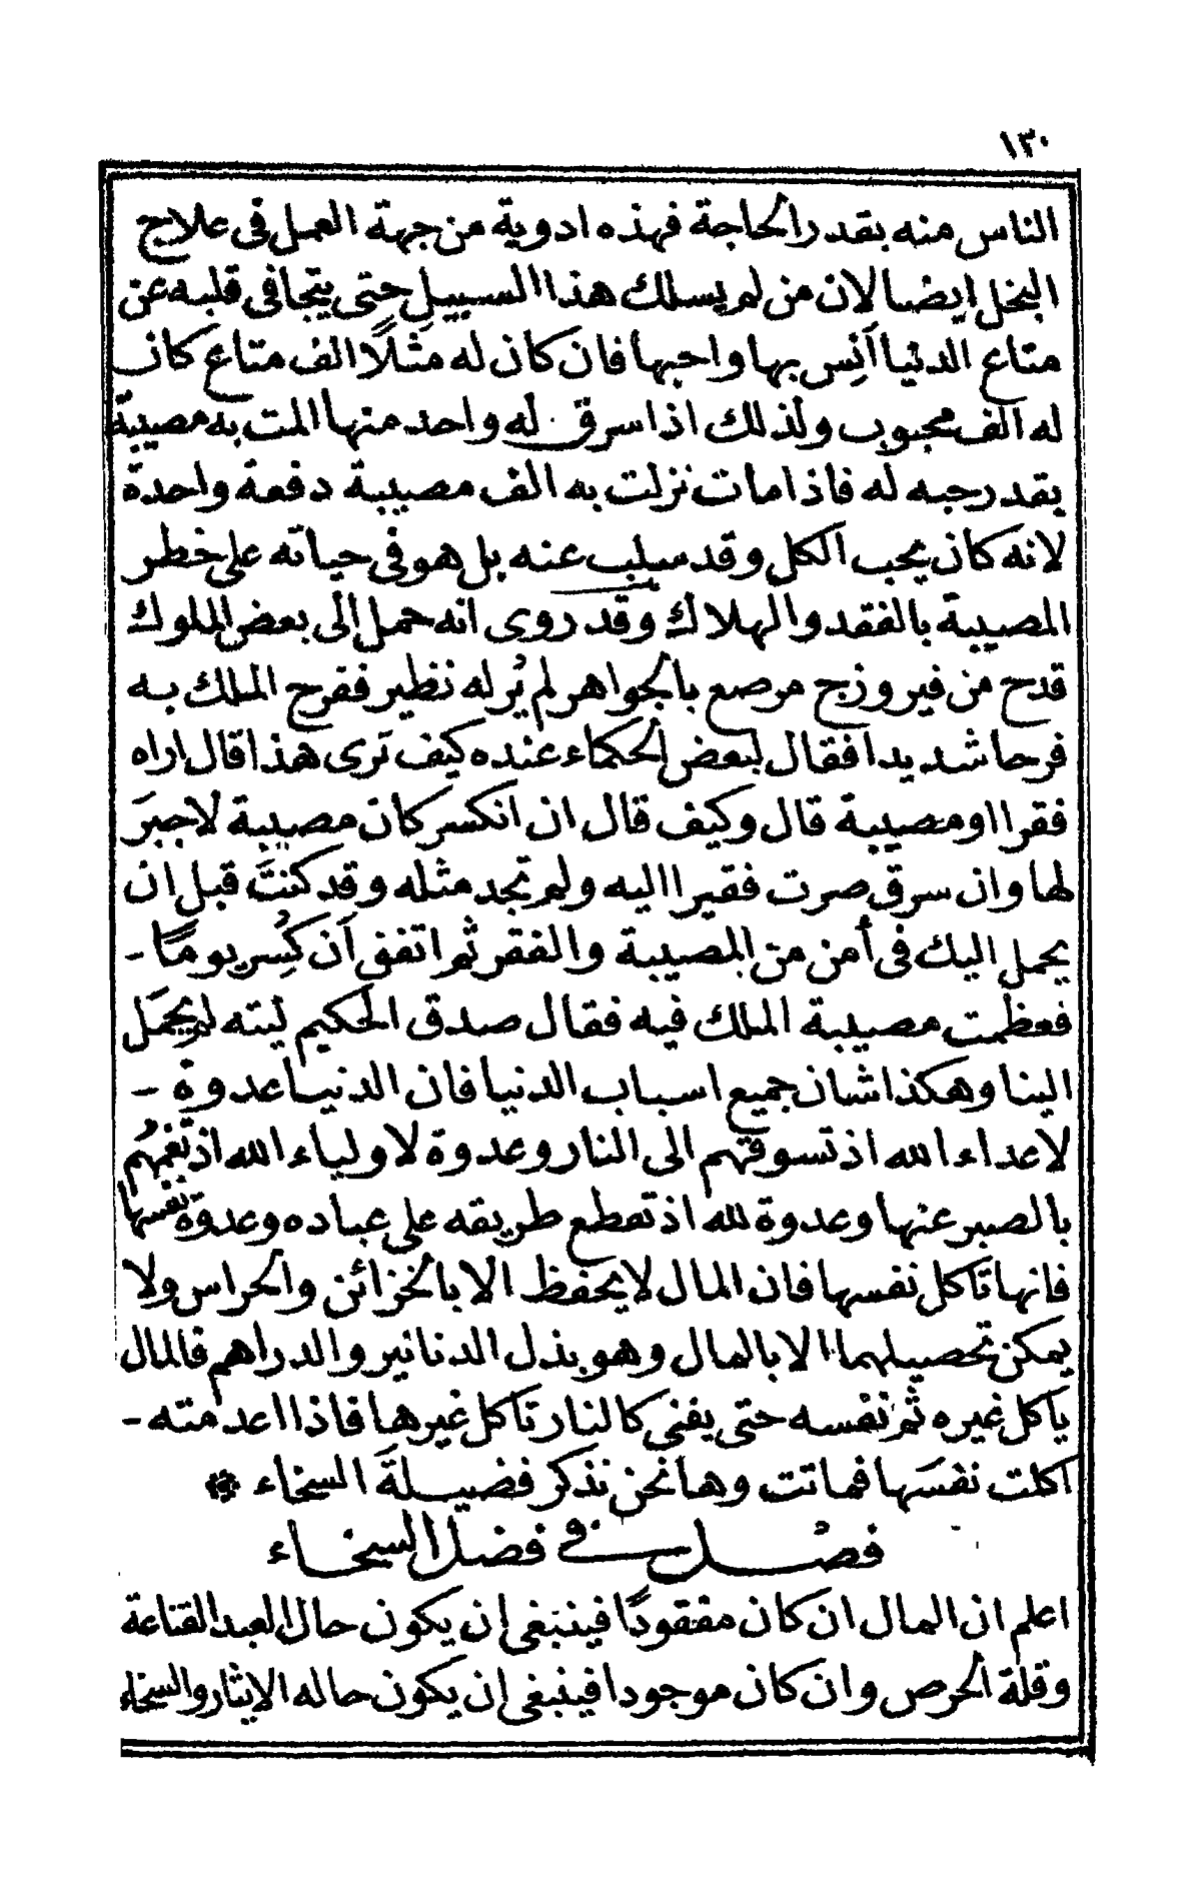 ١٣٠
الناس منه بقدر الحاجة فهذه ادوية من جهة العمل فى علاج
البخل ايضا لان من لم يسلك هذا السبيل حتى يتجافى قلبه عن
متاع الدنيا اَنِس بها واحبها فان كان له مثلًا الف متاع كان
له الف محبوب ولذلك اذا سرق له واحد منها المت به مصيبة
بقدر حبه له فاذا مات نزلت به الف مصيبة دفعة واحدة
لانه كان يحب الكل وقد سلب عنه بل هو فى حياته على خطر
المصيبة بالفقد والهلاك وقد روى انه حمل الى بعض الملوك
قدح من فيروزج مرصع بالجواهر لم يُر له نظير ففرح الملك به
فرحا شديدا فقال لبعض الحكماء عنده كيف ترى هذا قال اراه
فقرا او مصيبة قال وكيف قال ان انكسر كان مصيبة لا جبرَ
لها وان سرق صرت فقيرا اليه ولم تجد مثله وقد كنتَ قبل ان
يحمل اليك فى أمن من المصيبة والفقر ثم اتفق اَن كُسِر يومًا -
فعظمت مصيبة الملك فيه فقال صدق الحكيم ليته لم يحمَل
الينا وهكذا شان جميع اسباب الدنيا فان الدنيا عدوة -
لاعداء الله اذ تسوقهم الى النار وعدوة لاولياء الله اذ تغمهُم
بالصبر عنها وعدوة لله اذ تقطع طريقه على عباده وعدوة نفسها
فانها تاكل نفسها فان المال لا يحفظ الا بالخزائن والحراس ولا
يمكن تحصيلهما الا بالمال وهو بذل الدنانير والدراهم فالمال
ياكل غيره ثم نفسه حتى يفنى كالنار تاكل غيرها فاذا اعدمته -
اكلت نفسَها فماتت وها نحن نذكر فضيلةَ السخاء ❊
فصل فى فضل السخاء
اعلم ان المال ان كان مفقودًا فينبغى ان يكون حال العبد القناعة
وقلة الحرص وان كان موجودا فينبغى ان يكون حاله الايثار والسخاء